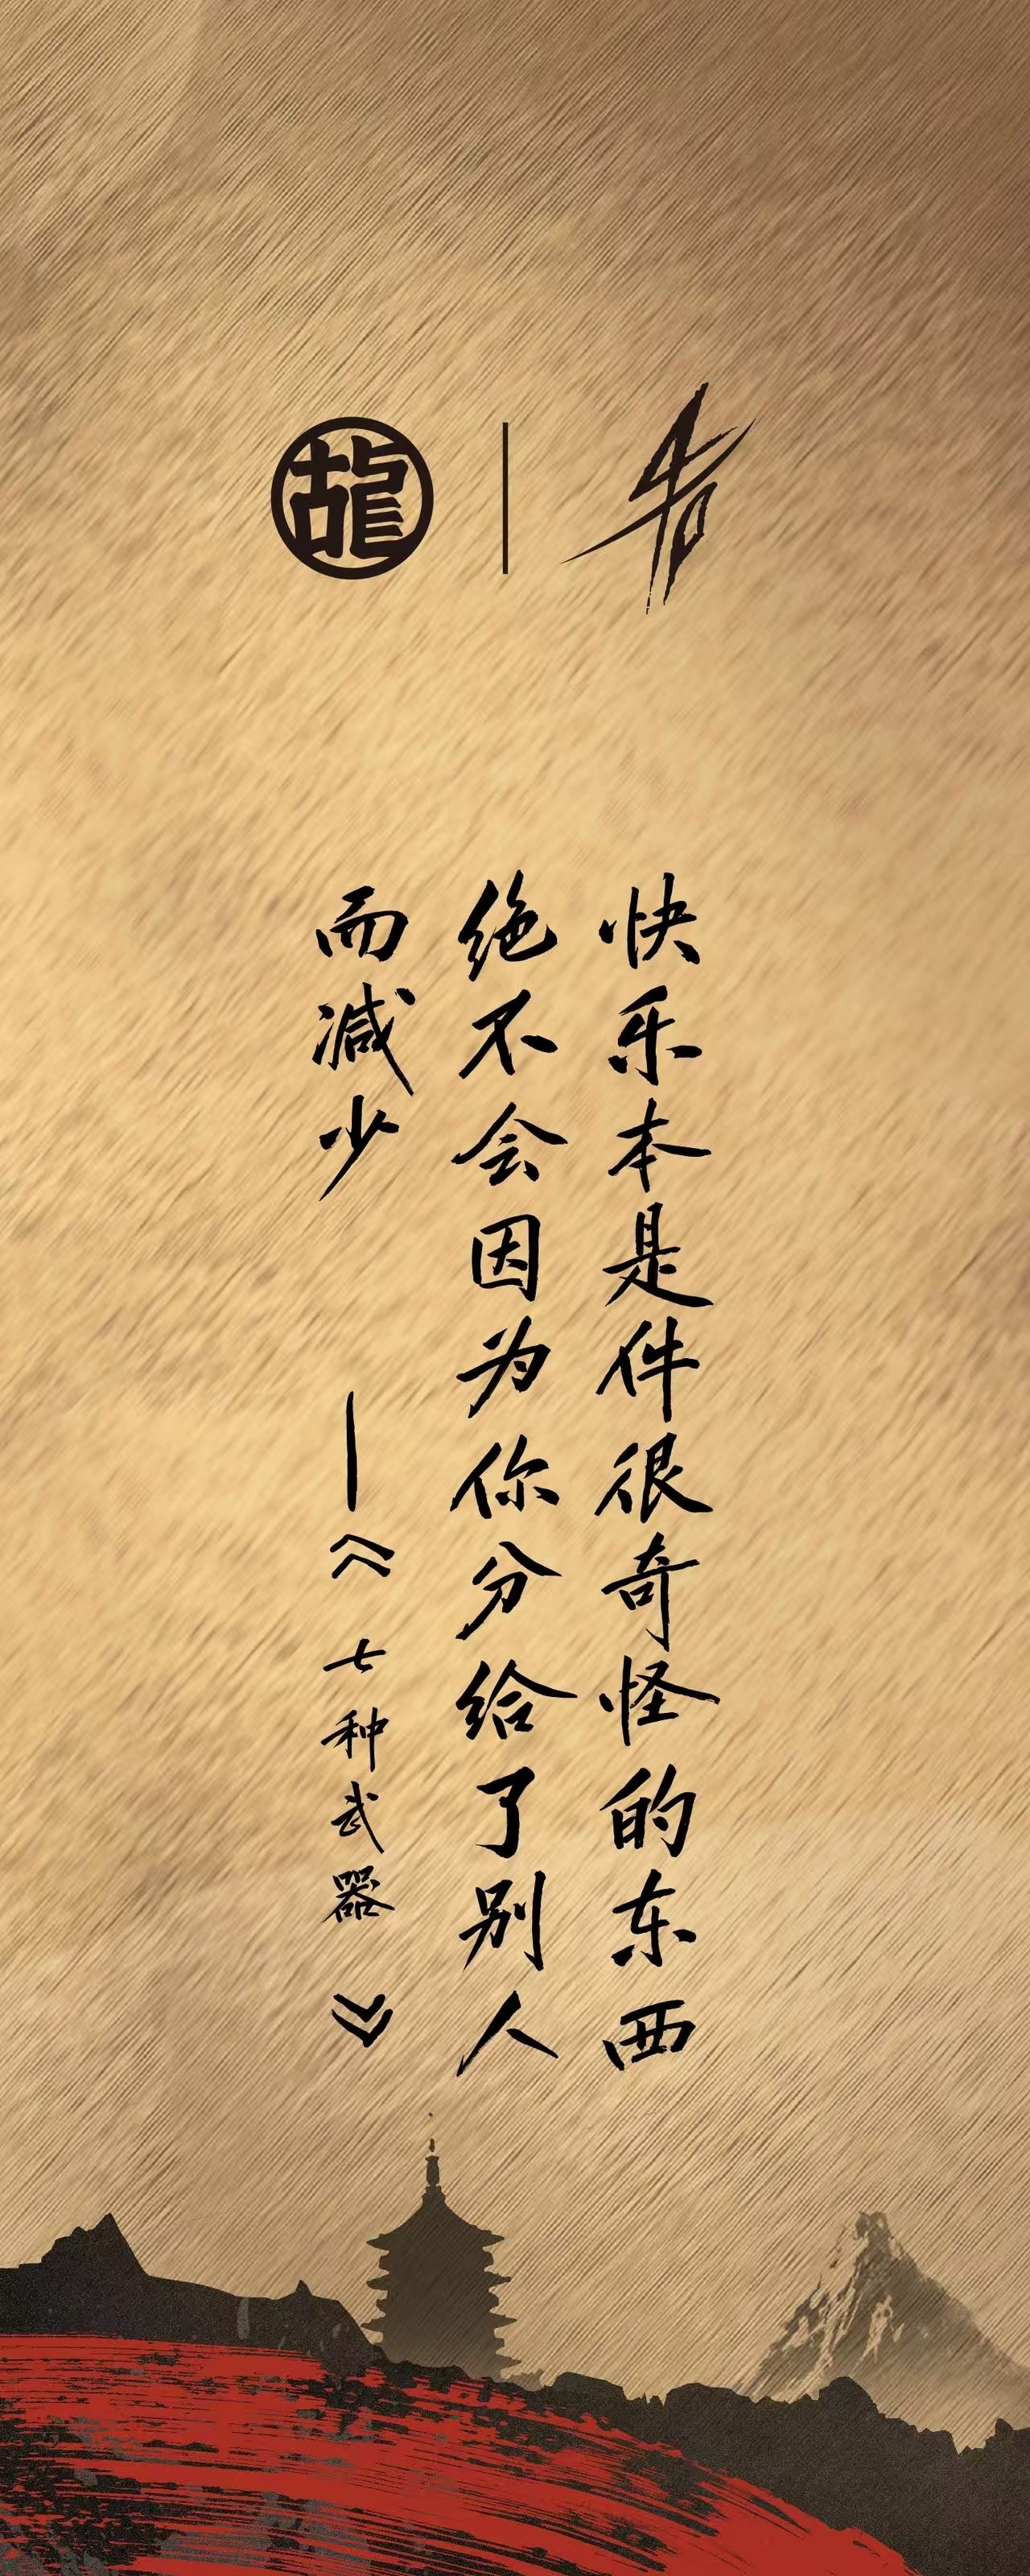 古龍
快乐本是件很奇怪的东西
绝不会因为你分给了别人
而减少 —《七种武器》